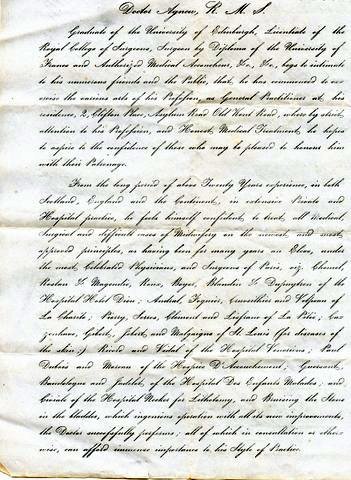 Doctor Agnew, R. M. S.
Graduate of the University of Edinburgh, Licentiate of the
Royal College of Surgeons, Surgeon by Diploma of the University of
France and Authorized Medical Accoucheur, &c., &c., begs to intimate
to his numerous friends and the Public, that he has commenced to ex-
ercise the various arts of his Profession, as General Practitioner at his
residence, 2, Clifton Place, Asylum Road Old Kent Road, where by strict
attention to his Profession, and Honest Medical Treatment, he hopes
to aspire to the confidence of those who may be pleased to honour him
with their Patronage.
From the long period of above Twenty Years experience, in both
Scotland, England and the Continent, in extensive Private and
Hospital practice, he feels himself confident to treat all Medical,
Surgical and difficult cases of Midwifery on the newest and most
approved principles, as having been for many years an Eleve, under
the most Celebrated Physicians, and Surgeons of Paris, viz. Chomel,
Rostan Magendie, Roux, Boyer, Blandin & Dupuytren of the
Hospital Hotel Dieu; Andral, Fouquier, Cruveilhier and Velpeau of
La Charite; Piorry, Serres, Clement and Lisfranc of La Pitie; Caz-
zenhave, Gibert, Jobert, and Malgaigne of St. Louis (for diseases of
the skin;) Ricord and Vidal of the Hospital Venerians; Paul
Dubois and Moreau of the Hospice D'Accouchement; Guersant,
Baudelogue and Jadelot, of the Hospital Des Enfants Malades; and
Civiale of the Hospital Necker for Lithotomy, and Bruising the Stone
in the bladder, which ingenious operation with all its new improvements,
the Doctor successfully performs; all of which in consultation or other-
wise, can afford immense importance to his Style of Practice.